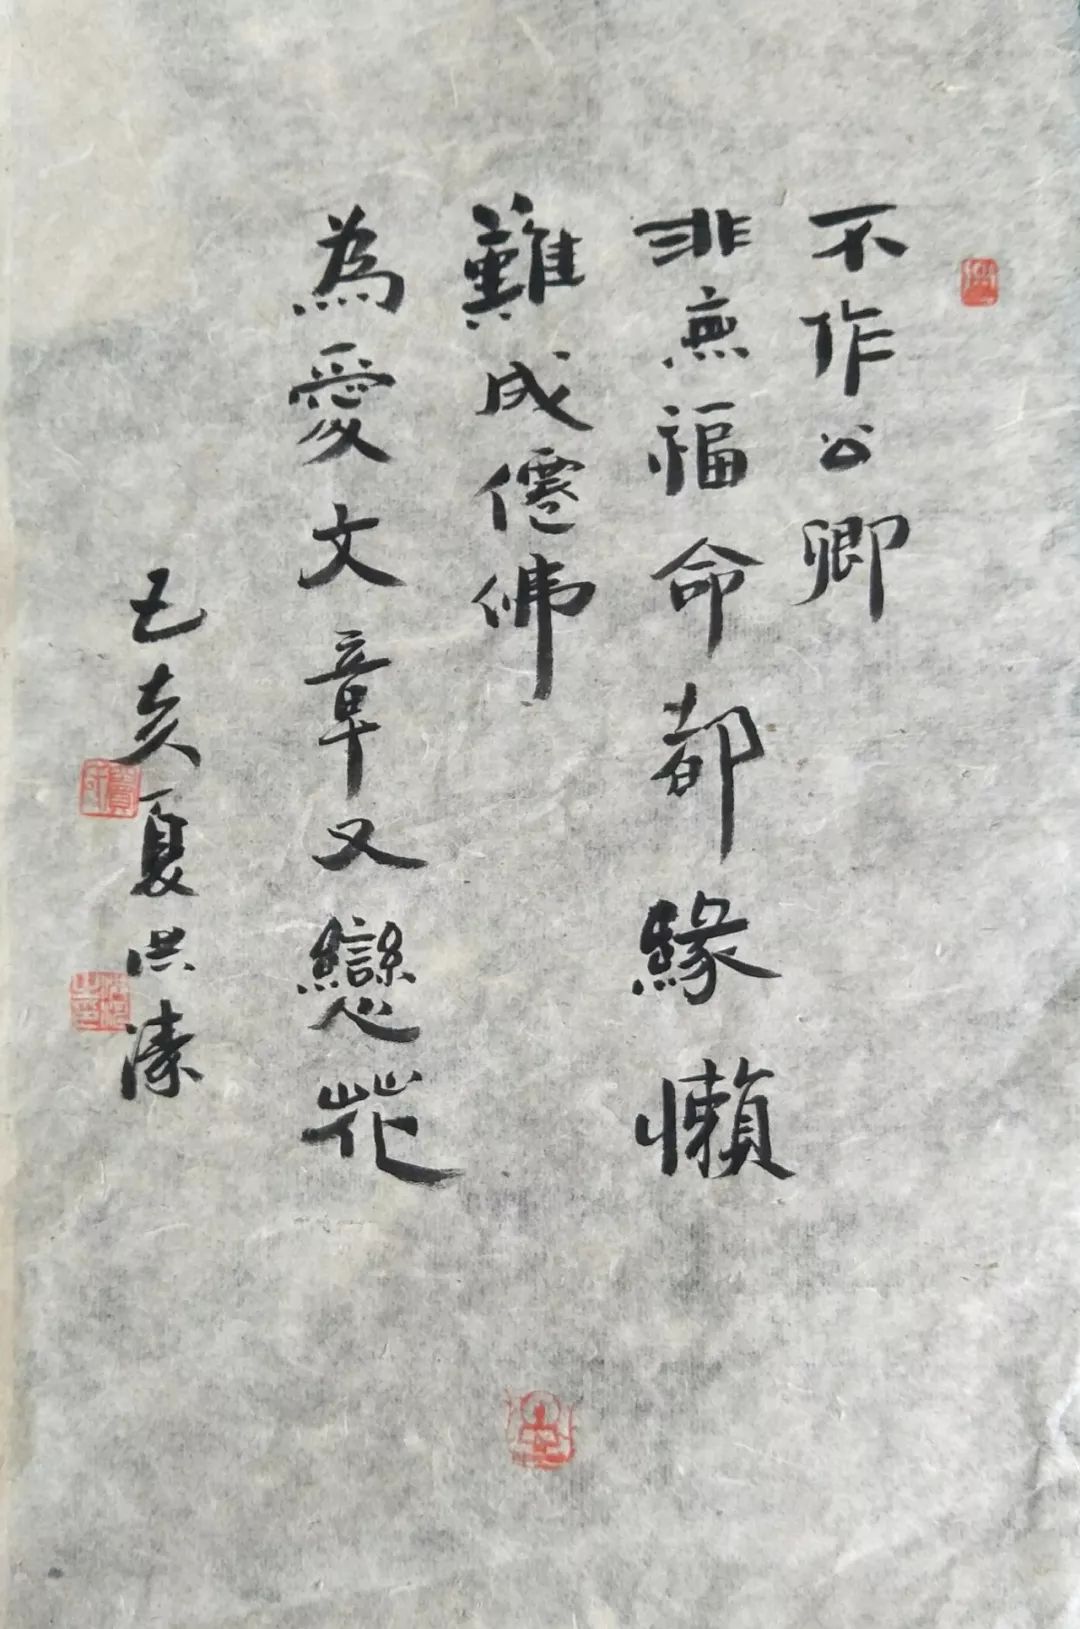 不作公卿
非無福命都緣懶
難成僊佛
為愛文章又戀花
己亥夏洪溱